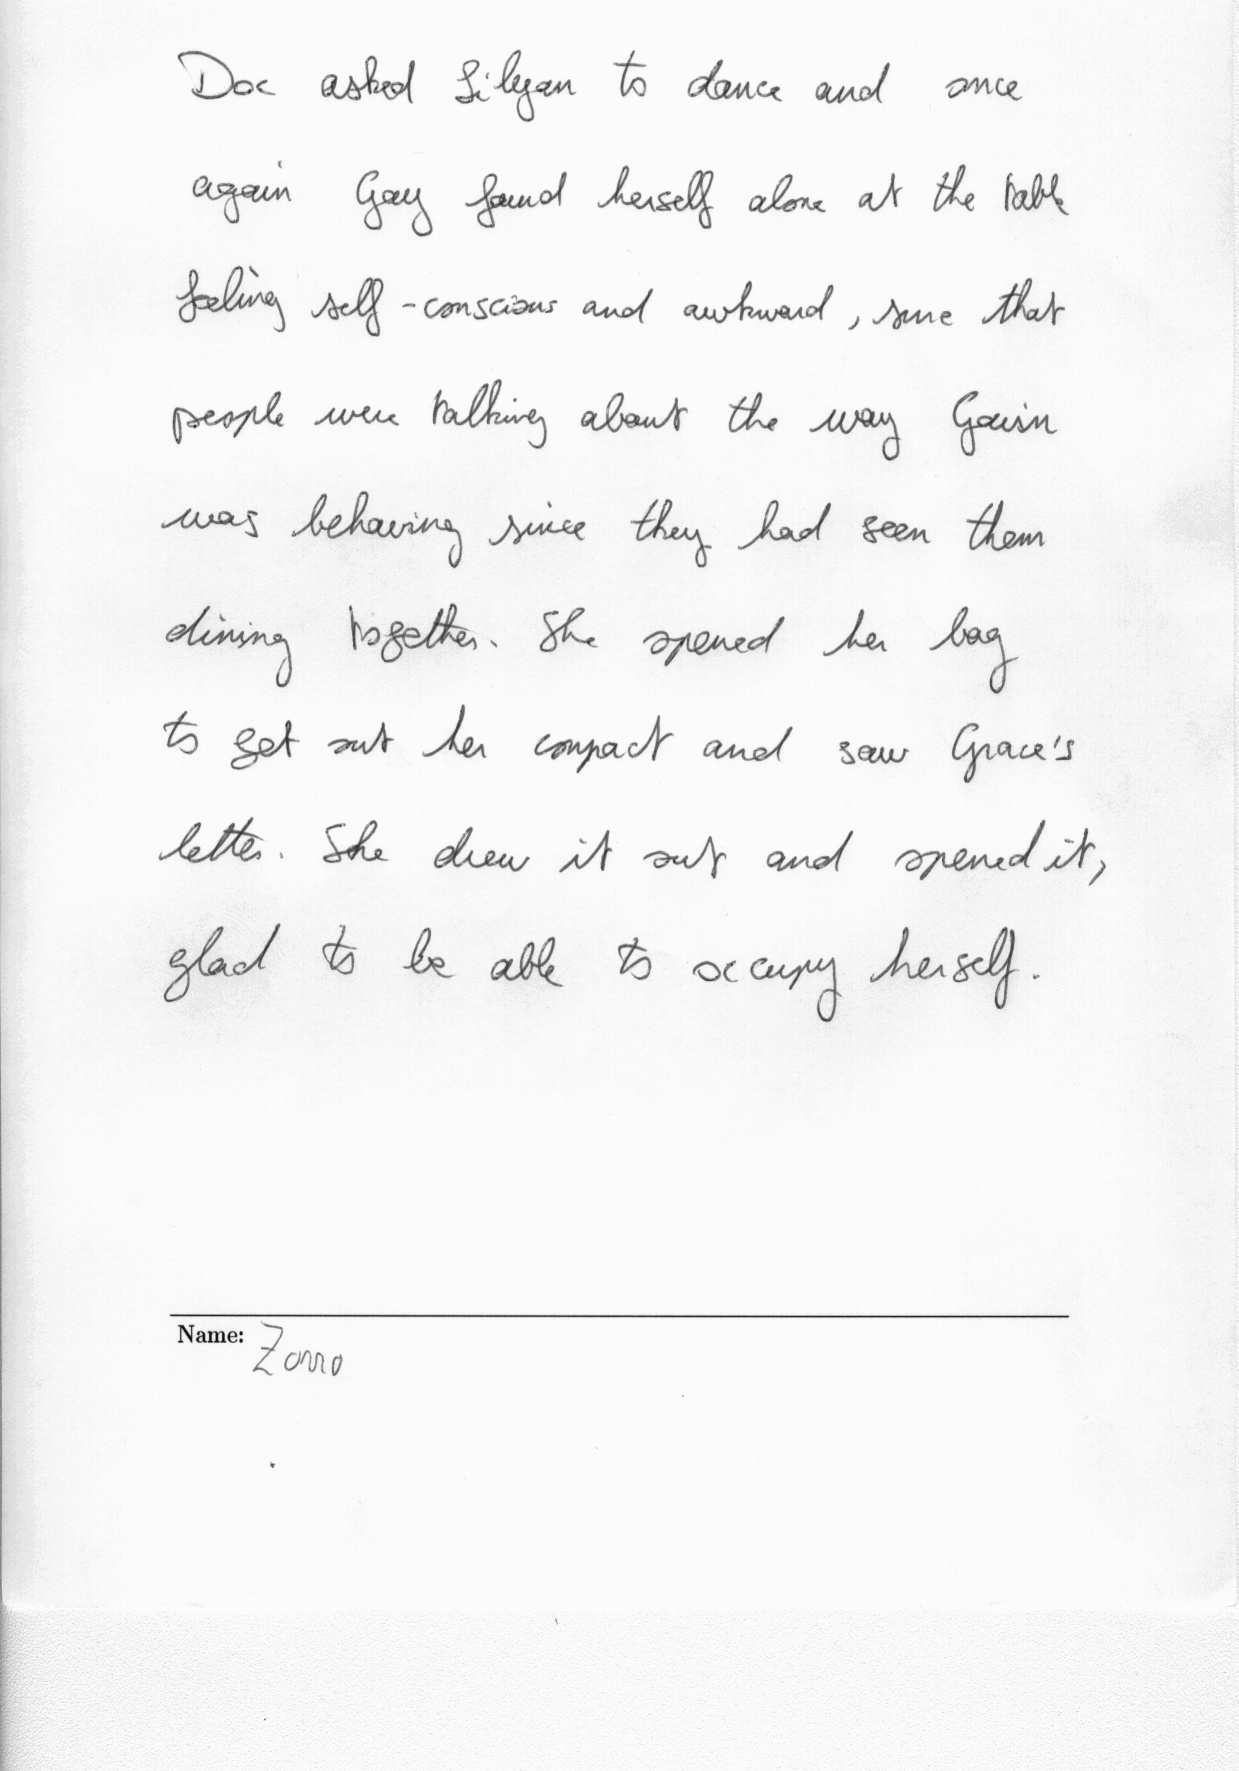 Doc asked Lilyan to dance and once
again Gay found herself alone at the table
feeling self-conscious and awkward, sure that
people were talking about the way Gavin
was behaving since they had seen them
dining together. She opened her bag
to get out her compact and saw Grace's
letter. She drew it out and opened it,
glad to be able to occupy herself.
Name: Zorro